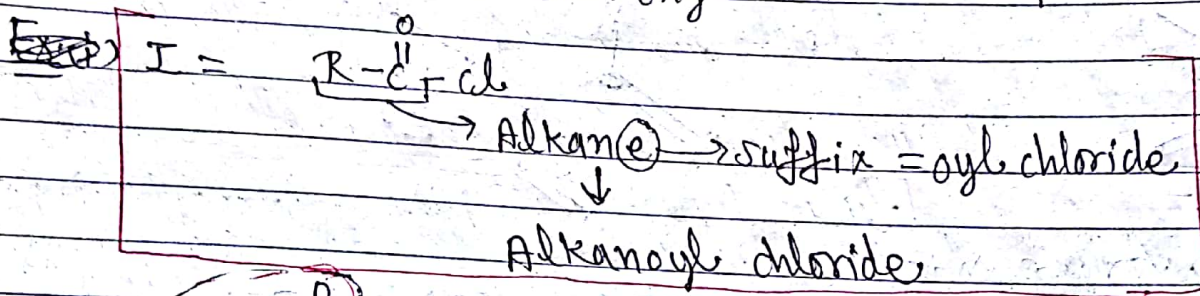 I = R-C-Cl
O
Alkane → suffix = oyl chloride
↓
Alkanoyl chloride